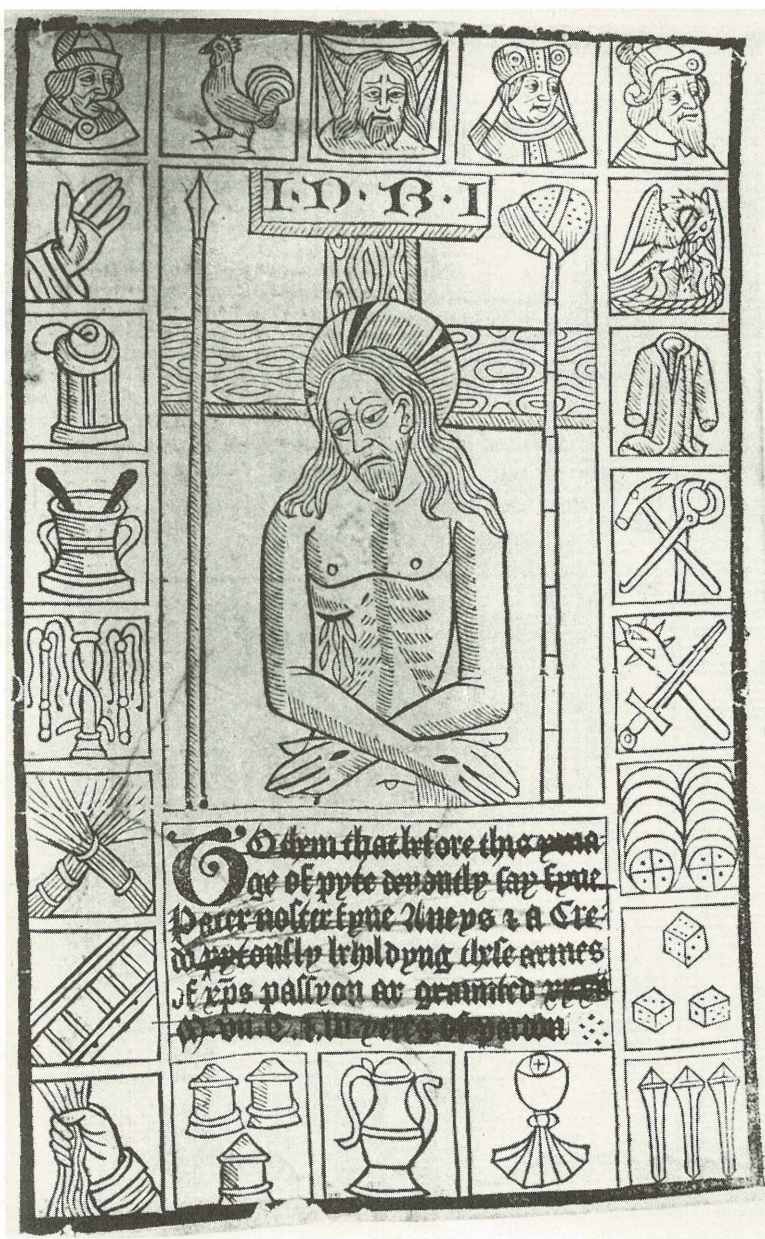 I·N·R·I
To them that before this yma-
ge of pyte deuoutly say fyue
Pater noster fyue Aueys & a Cre-
do pytously beholdyng these armes
of xp̄s passyon ar graunted
yeres of pardon